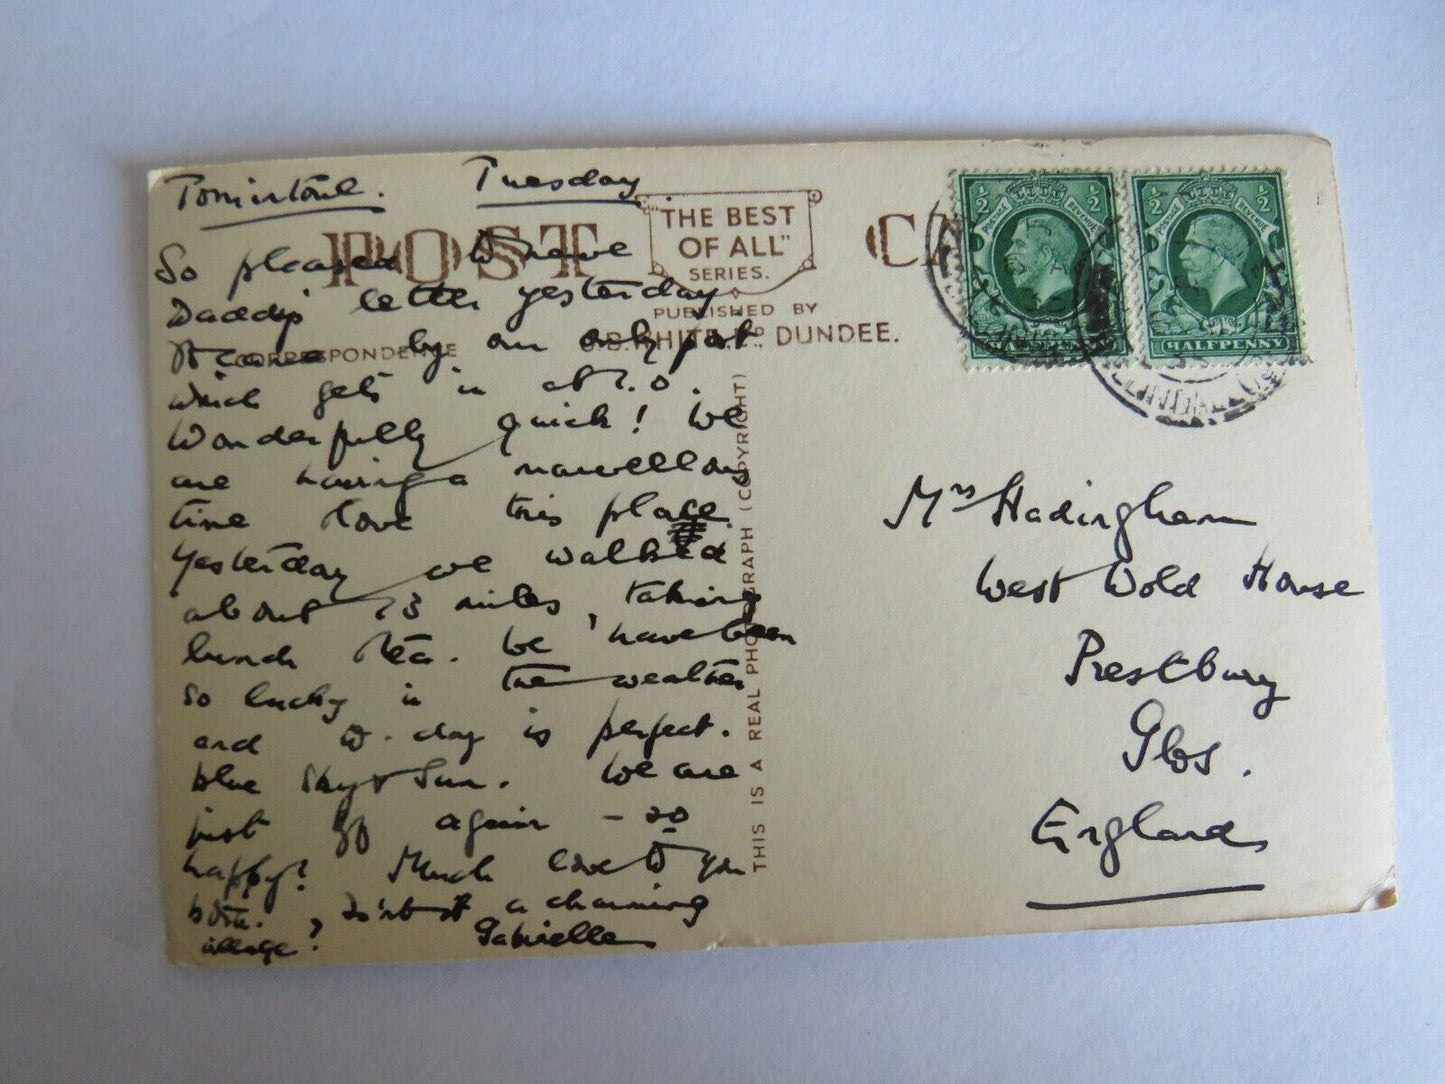 Tomintoul. Tuesday
POST CA
"THE BEST
OF ALL"
SERIES.
PUBLISHED BY
J.B. WHITE LD., DUNDEE.
CORRESPONDENCE
THIS IS A REAL PHOTOGRAPH (COPYRIGHT)
So pleased to have
Daddy's letter yesterday
It came by our only post
which gets in at 7.0.
Wonderfully quick! We
are having a marvellous
time & love this place.
Yesterday we walked
about 13 miles, taking
lunch & tea. We have been
so lucky in the weather
and to-day is perfect.
blue sky & sun. We are
just off again - so
happy! Much love to you
both. Isn't it a charming
village? Gabrielle
½ ½
POSTAGE REVENUE
HALFPENNY
½ ½
POSTAGE REVENUE
HALFPENNY
Mrs Hadingham
West Wold House
Prestbury
Glos.
England